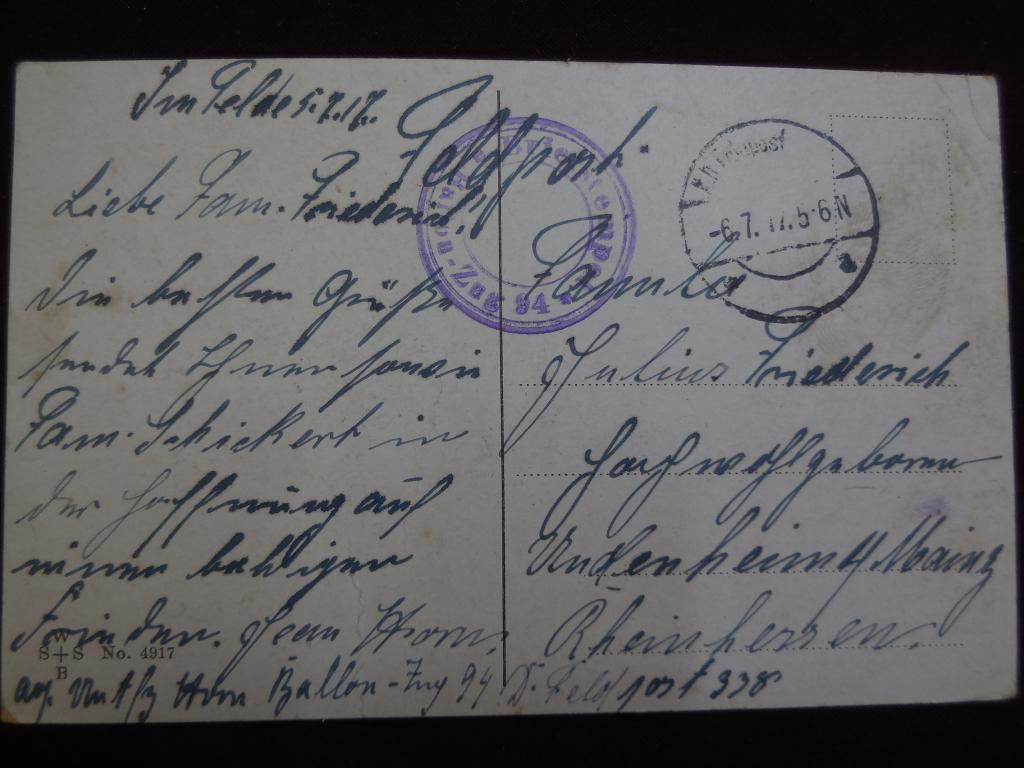 Im Felde 5.7.17.
Liebe Fam. Friederich!
Die besten Grüße
sendet Ihnen sowie
Fam. Schickert in
der Hoffnung auf
einen baldigen
Frieden. Jean Horn.
W
S+S No. 4917
B
Horn Ballon-Zug 94 D. Feldpost 338
Feldpost.
Familie
Julius Friederich
Hochwohlgeboren
Undenheim b/Mainz
Rheinhessen.
Ballon-Zug 94
K.D. Feldpost
-6.7.17.5-6N
a